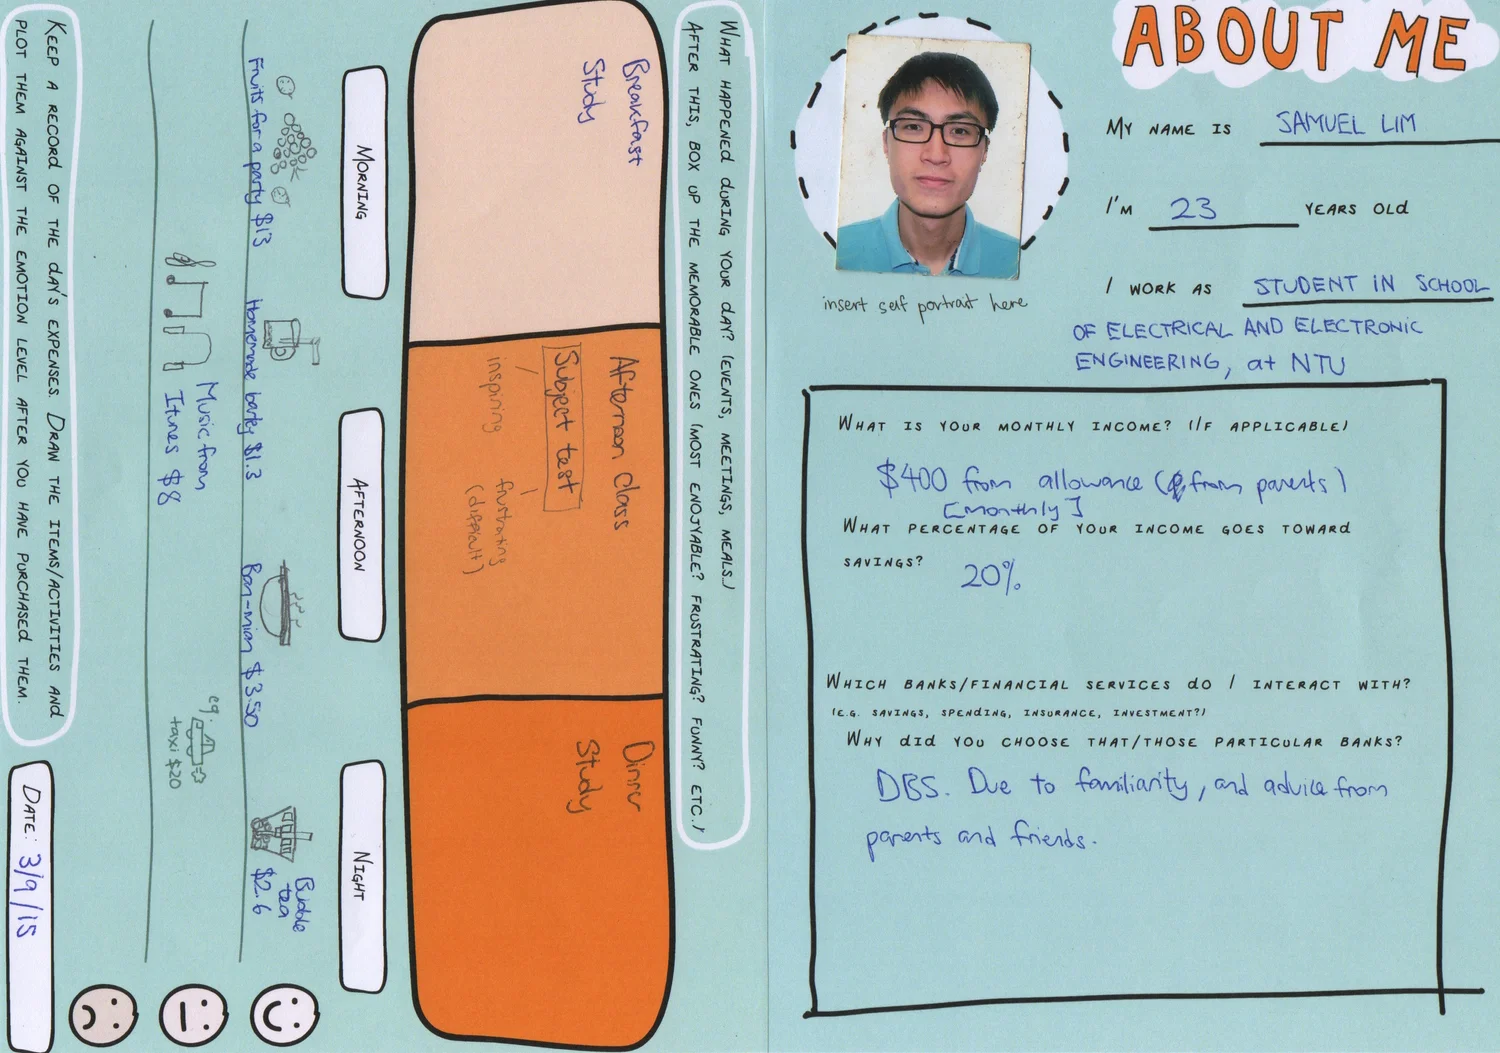 ABOUT ME
MY NAME IS SAMUEL LIM
I'M 23 YEARS OLD
I WORK AS STUDENT IN SCHOOL
OF ELECTRICAL AND ELECTRONIC
ENGINEERING, at NTU
insert self portrait here
WHAT IS YOUR MONTHLY INCOME? (IF APPLICABLE)
$400 from allowance (from parents)
[monthly]
WHAT PERCENTAGE OF YOUR INCOME GOES TOWARD
SAVINGS? 20%
WHICH BANKS/FINANCIAL SERVICES do I INTERACT WITH?
(E.G. SAVINGS, SPENDING, INSURANCE, INVESTMENT?)
WHY did YOU CHOOSE THAT/THOSE PARTICULAR BANKS?
DBS. Due to familiarity, and advice from
parents and friends.
WHAT HAPPENED dURING YOUR dAY? (EVENTS, MEETINGS, MEALS.)
AFTER THIS, BOX UP THE MEMORABLE ONES (MOST ENOJYABLE? FRUSTRATING? FUNNY? ETC.)
Breakfast
Study
Afternoon class
Subject test
inspiring
frustrating
(difficult)
Dinner
Study
MORNING
AFTERNOON
NIGHT
Fruits for a party $13
Homemade barley $1.3
Ban-mian $3.50
Bubble
tea
$2.6
Music from
Itunes $8
eg.
taxi $20
KEEP A RECORD OF THE dAY'S EXPENSES. DRAW THE ITEMS/ACTIVITIES AND
PLOT THEM AGAINST THE EMOTION LEVEL AFTER YOU HAVE PURCHASED THEM.
DATE: 3/9/15